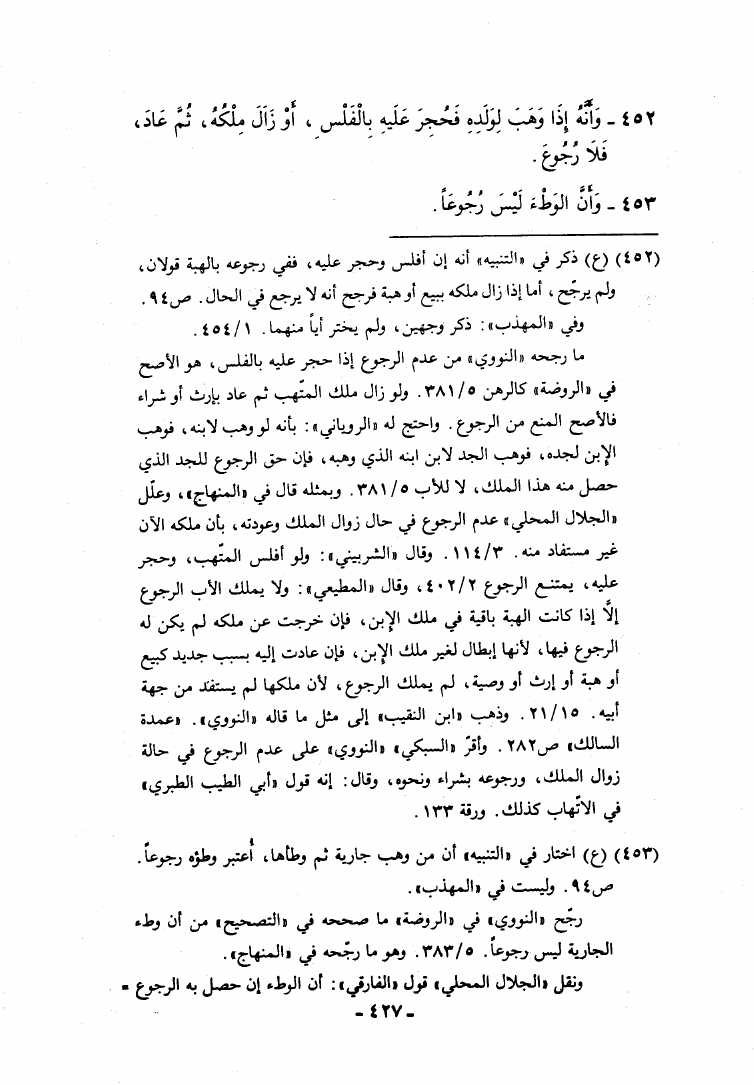 ٤٥٢ ـ وَأَنَّهُ إِذَا وَهَبَ لِوَلَدِهِ فَحُجِرَ عَلَيهِ بِالْفَلْسِ ، أَوْ زَالَ مِلْكُهُ، ثُمَّ عَادَ،
فَلَا رُجُوعَ .
٤٥٣ ـ وَأَنَّ الوَطْءَ لَيْسَ رُجُوعَاً .
(٤٥٢) (ع) ذكر في «التنبيه» أنه إن أفلس وحجر عليه، ففي رجوعه بالهبة قولان،
ولم يرجّح، أما إذا زال ملكه ببيع أو هبة فرجح أنه لا يرجع في الحال. ص٩٤.
وفي «المهذب»: ذكر وجهين، ولم يختر أياً منهما. ٤٥٤/١.
ما رجحه «النووي» من عدم الرجوع إذا حجر عليه بالفلس، هو الأصح
في «الروضة» كالرهن ٣٨١/٥. ولو زال ملك المتّهب ثم عاد بإرث أو شراء
فالأصح المنع من الرجوع. واحتج له «الروياني»: بأنه لو وهب لابنه، فوهب
الإبن لجده، فوهب الجد لابن ابنه الذي وهبه، فإن حق الرجوع للجد الذي
حصل منه هذا الملك، لا للأب ٣٨١/٥. وبمثله قال في «المنهاج»، وعلّل
«الجلال المحلي» عدم الرجوع في حال زوال الملك وعودته، بأن ملكه الآن
غير مستفاد منه. ١١٤/٣. وقال «الشربيني»: ولو أفلس المتّهب، وحجر
عليه، يمتنع الرجوع ٤٠٢/٢، وقال «المطيعي»: ولا يملك الأب الرجوع
إلَّا إذا كانت الهبة باقية في ملك الإبن، فإن خرجت عن ملكه لم يكن له
الرجوع فيها، لأنها إبطال لغير ملك الإبن، فإن عادت إليه بسبب جديد كبيع
أو هبة أو إرث أو وصية، لم يملك الرجوع، لأن ملكها لم يستفد من جهة
أبيه. ٢١/١٥. وذهب «ابن النقيب» إلى مثل ما قاله «النووي». «عمدة
السالك» ص٢٨٢. وأقرّ «السبكي» «النووي» على عدم الرجوع في حالة
زوال الملك، ورجوعه بشراء ونحوه، وقال: إنه قول «أبي الطيب الطبري»
في الاتّهاب كذلك. ورقة ١٣٣.
(٤٥٣) (ع) اختار في «التنبيه» أن من وهب جارية ثم وطأها، أعتبر وطؤه رجوعاً.
ص٩٤. وليست في «المهذب».
رجّح «النووي» في «الروضة» ما صححه في «التصحيح» من أن وطء
الجارية ليس رجوعاً. ٣٨٣/٥. وهو ما رجّحه في «المنهاج».
ونقل «الجلال المحلي» قول «الفارقي»: أن الوطء إن حصل به الرجوع =
ـ ٤٢٧ ـ